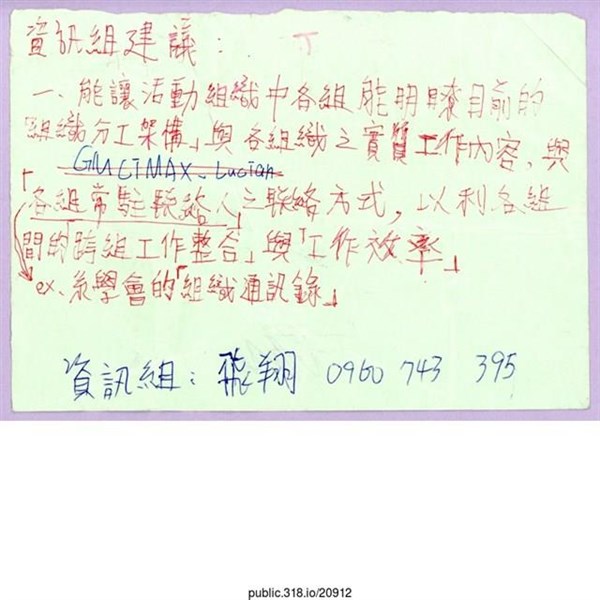 資訊組建議：
一、能讓活動組織中各組能明瞭目前的
「組織分工架構」與各組織之實質工作內容、與
GMCIMAX- Lucian
「各組常駐聯絡人之聯絡方式，以利各組
間的跨組工作整合」與「工作效率」
ex、系學會的「組織通訊錄」
資訊組：飛翔 0960 743 395
public.318.io/20912